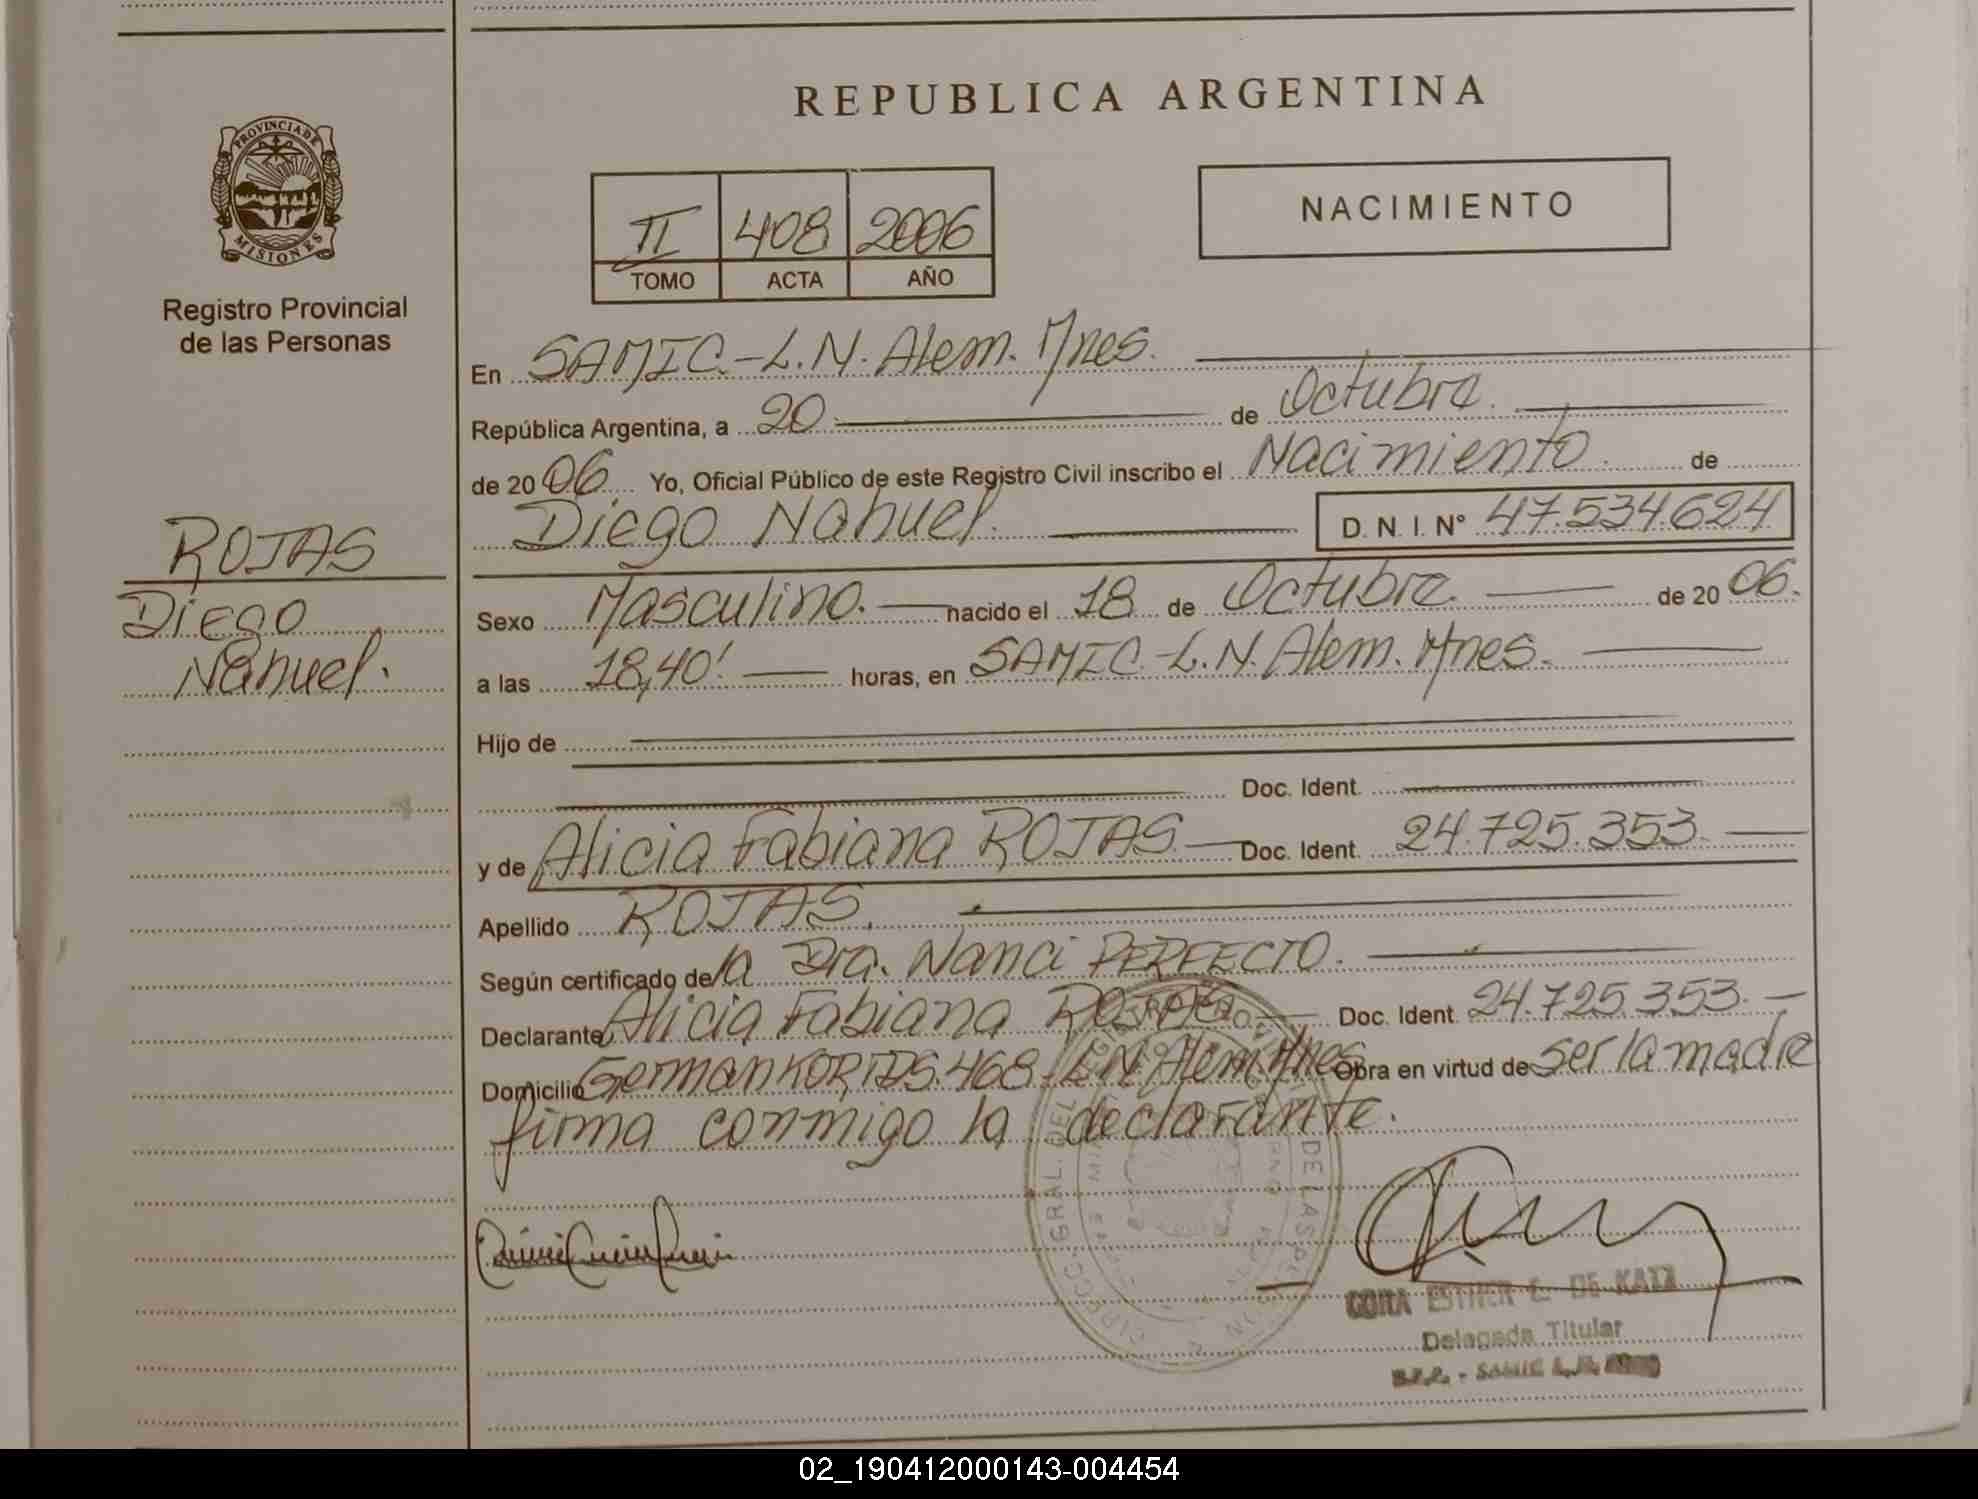 REPUBLICA ARGENTINA
PROVINCIA DE
MISIONES
Registro Provincial
de las Personas
II 408 2006
TOMO ACTA AÑO
NACIMIENTO
En SAMIC.-L.N. Alem. Mnes.
República Argentina, a 20 de Octubre.
de 2006. Yo, Oficial Público de este Registro Civil inscribo el Nacimiento. de
Diego Nahuel. D.N.I. Nº 47.534.624
ROJAS
Diego
Nahuel.
Sexo Masculino. nacido el 18 de Octubre. de 2006.
a las 18,40' horas, en SAMIC.-L.N. Alem. Mnes.
Hijo de
Doc. Ident.
y de Alicia Fabiana ROJAS. Doc. Ident. 24.725.353.
Apellido ROJAS.
Según certificado de la Dra. Nanci PERFECTO.
Declarante Alicia Fabiana ROJAS Doc. Ident. 24.725.353.
Domicilio German 468-L.N. Alem. Mnes Obra en virtud de ser la madre
firma conmigo la declarante.
ESTHER E. DE KATZ
Delegada Titular
02_190412000143-004454